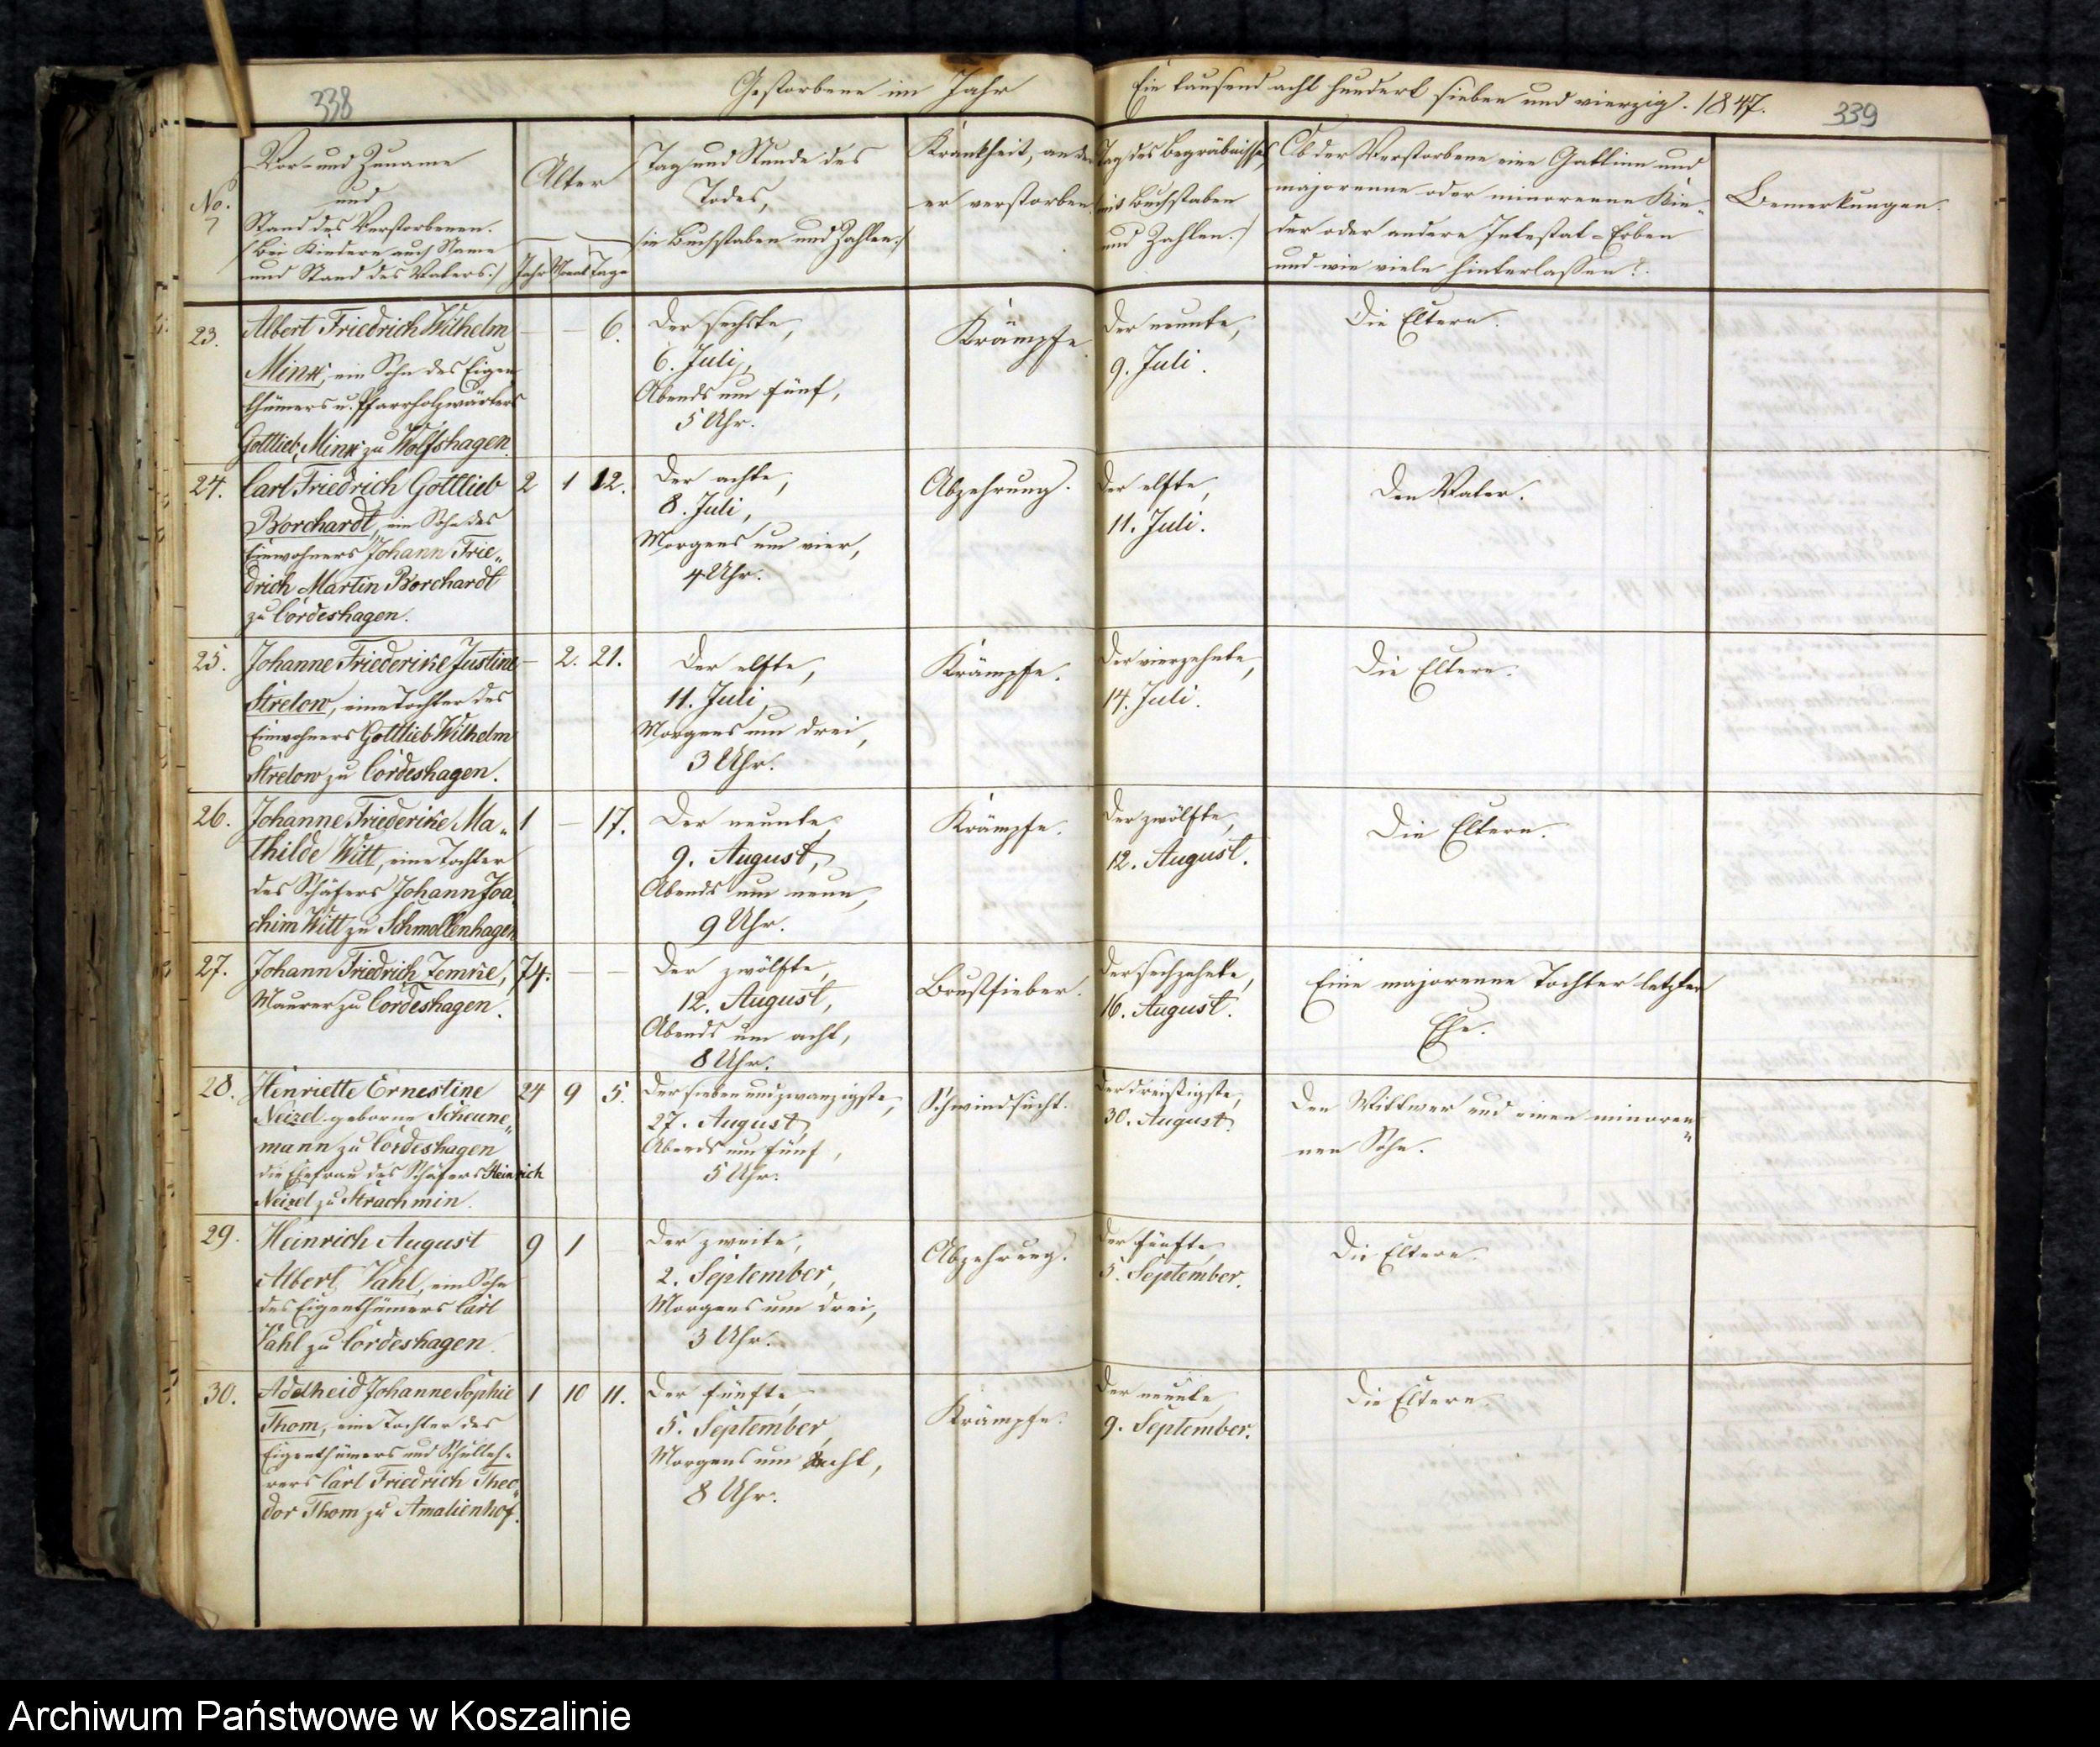 338
Gestorbene im Jahr
Ein tausend acht hundert sieben und vierzig. 1847.
339
No.
Vor- und Zuname
und
Stand des Verstorbenen.
/: Bei Kindern auch Name
und Stand des Vaters :/
Alter
Jahr Monat Tage
Tag und Stunde des
Todes,
/: in Buchstaben und Zahlen :/
Krankheit, an der
er verstorben.
Tag des Begräbnisses,
mit Buchstaben
und Zahlen. :/
Ob der Verstorbene eine Gattinn und
majorenne oder minorenne Kin„
der oder andere Intestat-Erben
und wie viele hinterlassen?
Bemerkungen.
23.
Albert Friedrich Wilhelm
Mink, ein Sohn des Eigen„
thümers u. Pfarrholzwärters
Gottlieb Mink zu Wolfshagen.
— — 6.
Der sechste,
6. Juli,
Abends um fünf,
5 Uhr.
Krämpfe.
Der neunte,
9. Juli.
Die Eltern.
24.
Carl Friedrich Gottlieb
Borchardt, ein Sohn des
Einwohners Johann Frie„
drich Martin Borchardt
zu Cordeshagen.
2 1 12.
Der achte,
8. Juli,
Morgens um vier,
4 Uhr.
Abzehrung.
Der elfte,
11. Juli.
Den Vater.
25.
Johanne Friederike Justine
Strelow, eine Tochter des
Einwohners Gottlieb Wilhelm
Strelow zu Cordeshagen.
— 2. 21.
Der elfte,
11. Juli,
Morgens um drei,
3 Uhr.
Krämpfe.
Der vierzehnte,
14. Juli.
Die Eltern.
26.
Johanne Friederike Ma„
thilde Witt, eine Tochter
des Schäfers Johann Joa„
chim Witt zu Schmollenhagen
1 — 17.
Der neunte,
9. August,
Abends um neun,
9 Uhr.
Krämpfe.
Der zwölfte,
12. August.
Die Eltern.
27.
Johann Friedrich Zemke,
Maurer zu Cordeshagen.
74. — —
Der zwölfte,
12. August,
Abends um acht,
8 Uhr.
Brustfieber.
Der sechzehnte,
16. August.
Eine majorenne Tochter letzter
Ehe.
28.
Henriette Ernestine
Neizel geborne Scheune„
mann zu Cordeshagen
die Ehefrau des Schäfers Heinrich
Neizel zu Strachmin.
24 9 5.
Der sieben und zwanzigste,
27. August,
Abends um fünf,
5 Uhr.
Schwindsucht.
Der dreißigste,
30. August.
Den Wittwer und einen minoren„
nen Sohn.
29.
Heinrich August
Albert Vahl, ein Sohn
des Eigenthümers Carl
Vahl zu Cordeshagen.
9 1
Der zweite,
2. September,
Morgens um drei,
3 Uhr.
Abzehrung.
Der fünfte,
5. September.
Die Eltern.
30.
Adelheid Johanne Sophie
Thom, eine Tochter des
Eigenthümers und Schulleh-
rers Carl Friedrich Theo„
dor Thom zu Amalienhof.
1 10 11.
Der fünfte,
5. September,
Morgens um acht,
8 Uhr.
Krämpfe.
Der neunte,
9. September.
Die Eltern.
Archiwum Państwowe w Koszalinie